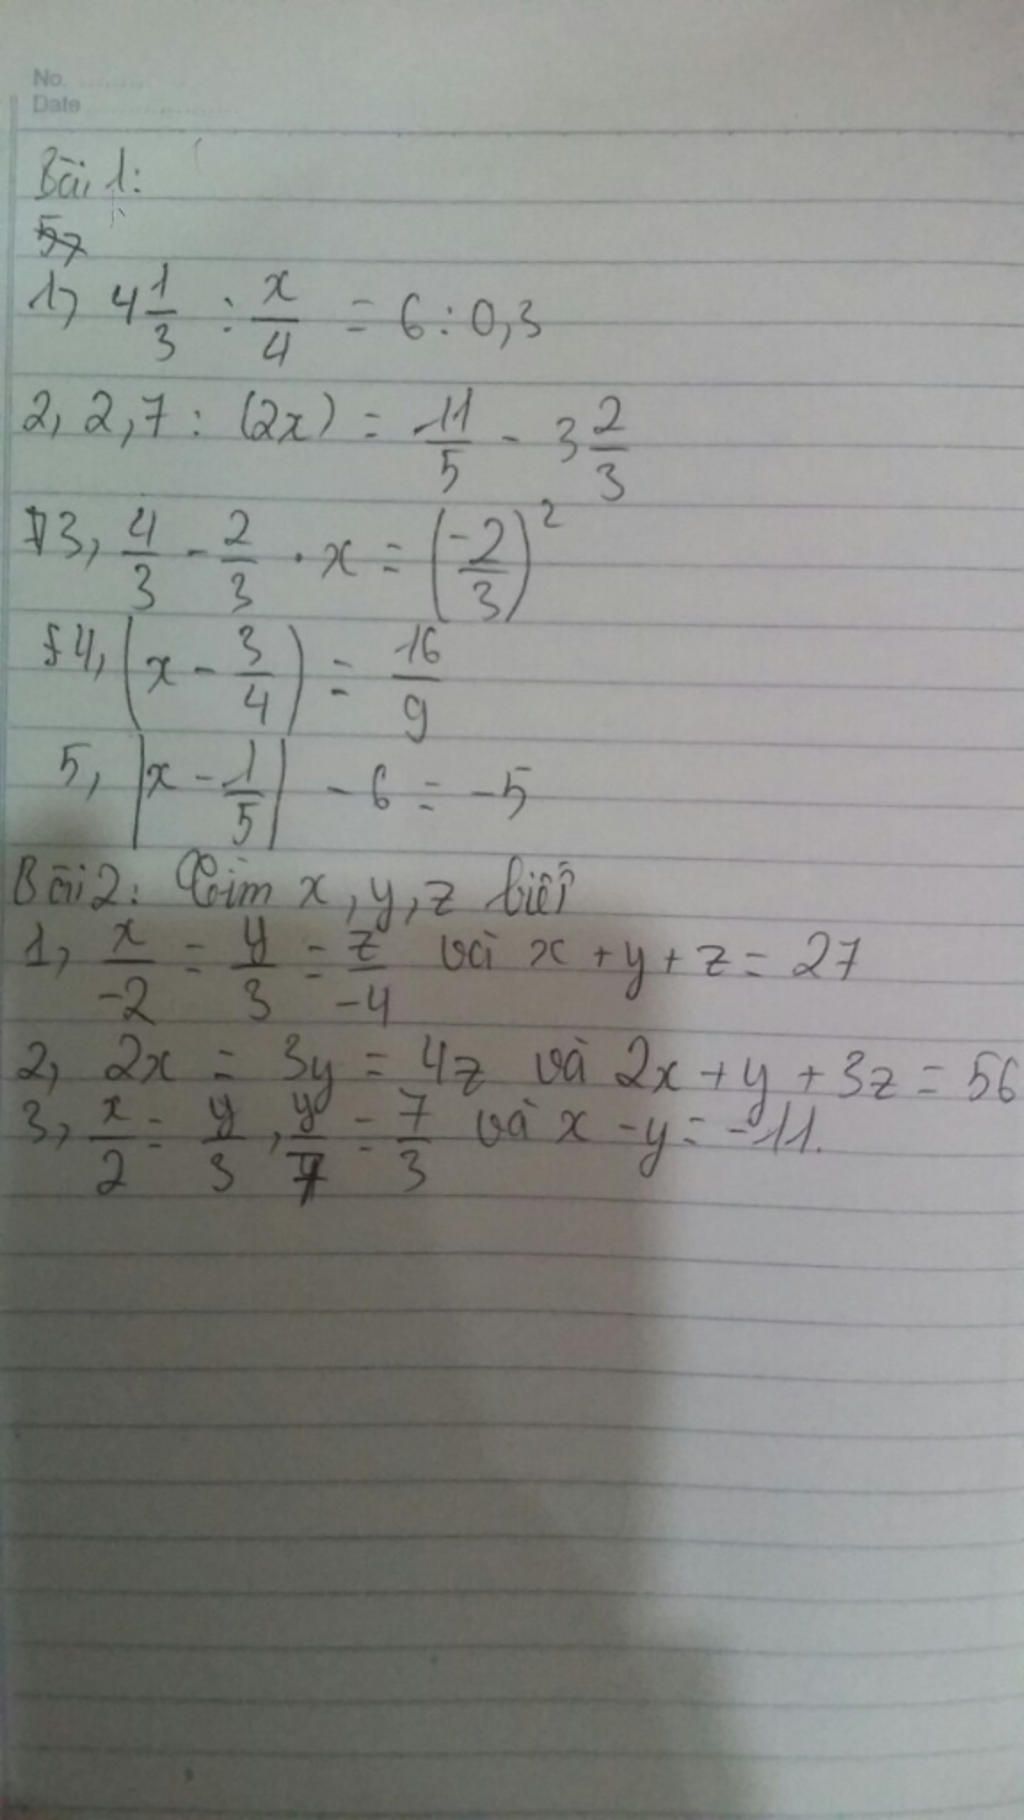 No. ........
Date ................
Bài 1:
57
1, 4 1/3 : x/4 = 6 : 0,3
2, 2,7 : (2x) = 11/5 - 3 2/3
3, 4/3 - 2/3 . x = (-2/3)²
4, (x - 3/4) = 16/9
5, |x - 1/5| - 6 = -5
Bài 2: Tìm x, y, z biết
1, x/-2 = y/3 = z/-4 và x + y + z = 27
2, 2x = 3y = 4z và 2x + y + 3z = 56
3, x/2 = y/3, y/7 = 7/3 và x - y = -11.